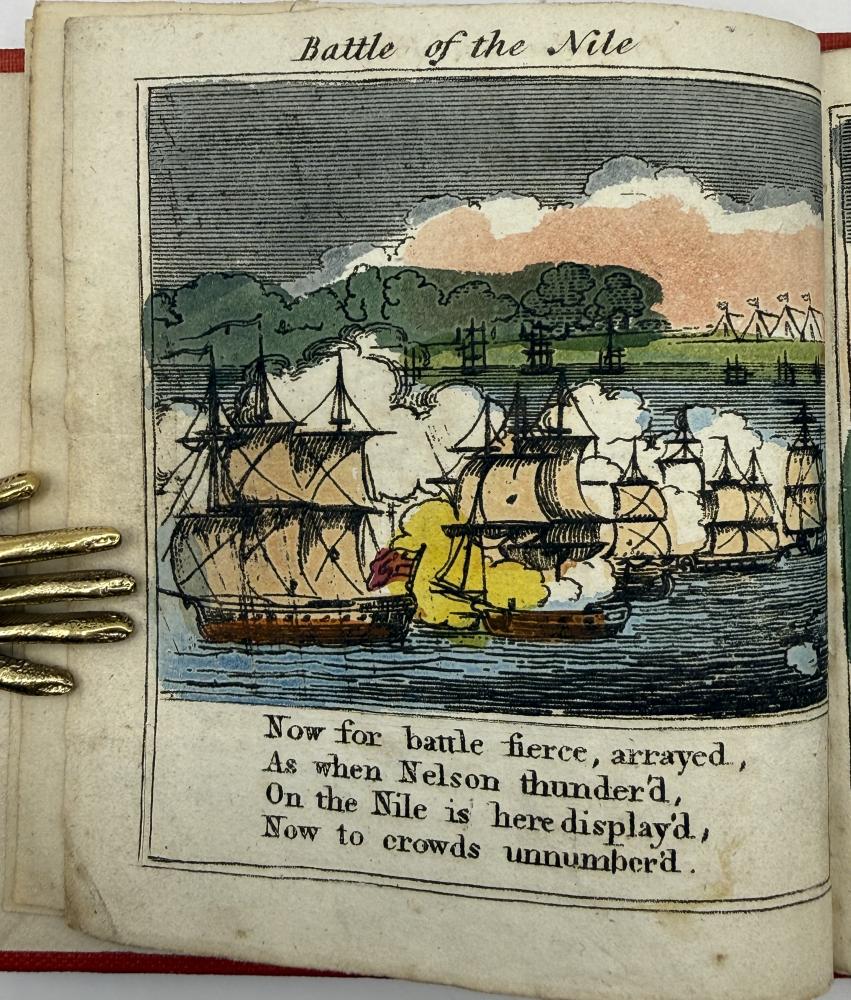 Battle of the Nile
Now for battle fierce, arrayed,
As when Nelson thunder'd,
On the Nile is here display'd,
Now to crowds unnumber'd.